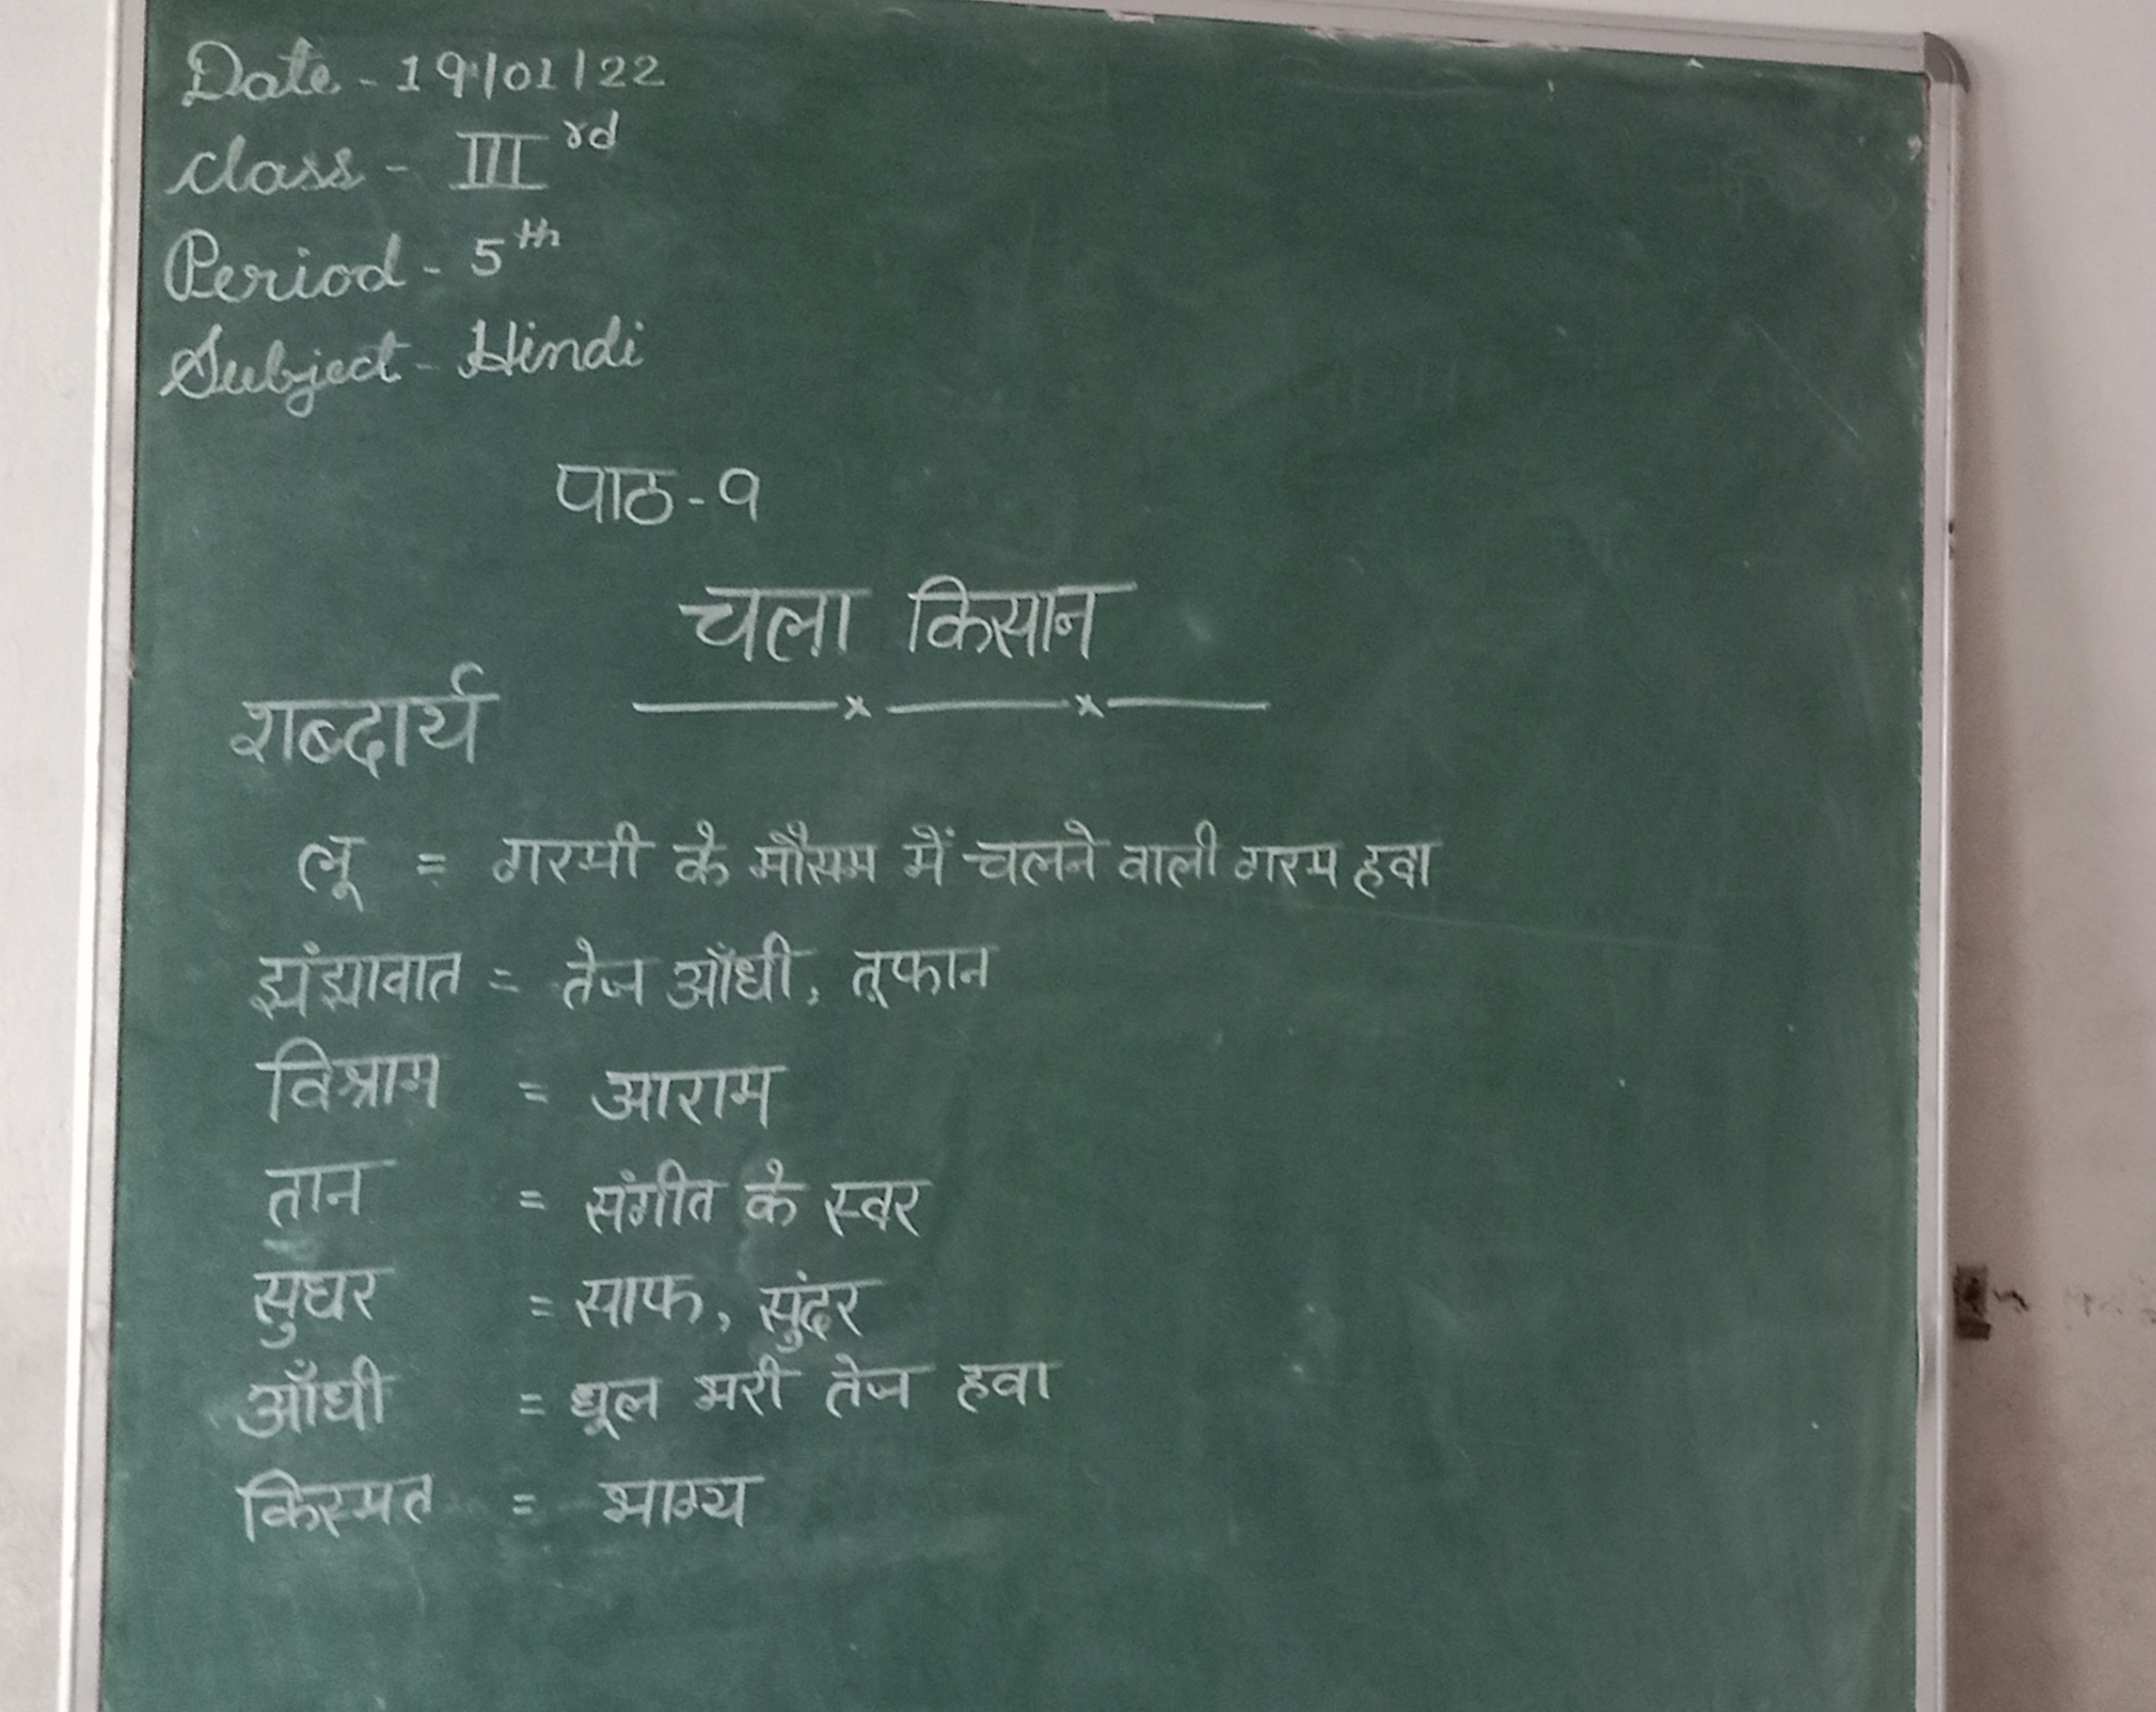 Date - 19/01/22
Class - III rd
Period - 5th
Subject - Hindi
पाठ-९
चला किसान
शब्दार्थ
लू = गरमी के मौसम में चलने वाली गरम हवा
झंझावात = तेज आँधी, तूफान
विश्राम = आराम
तान = संगीत के स्वर
सुघर = साफ, सुंदर
आँधी = धूल भरी तेज हवा
किस्मत = भाग्य